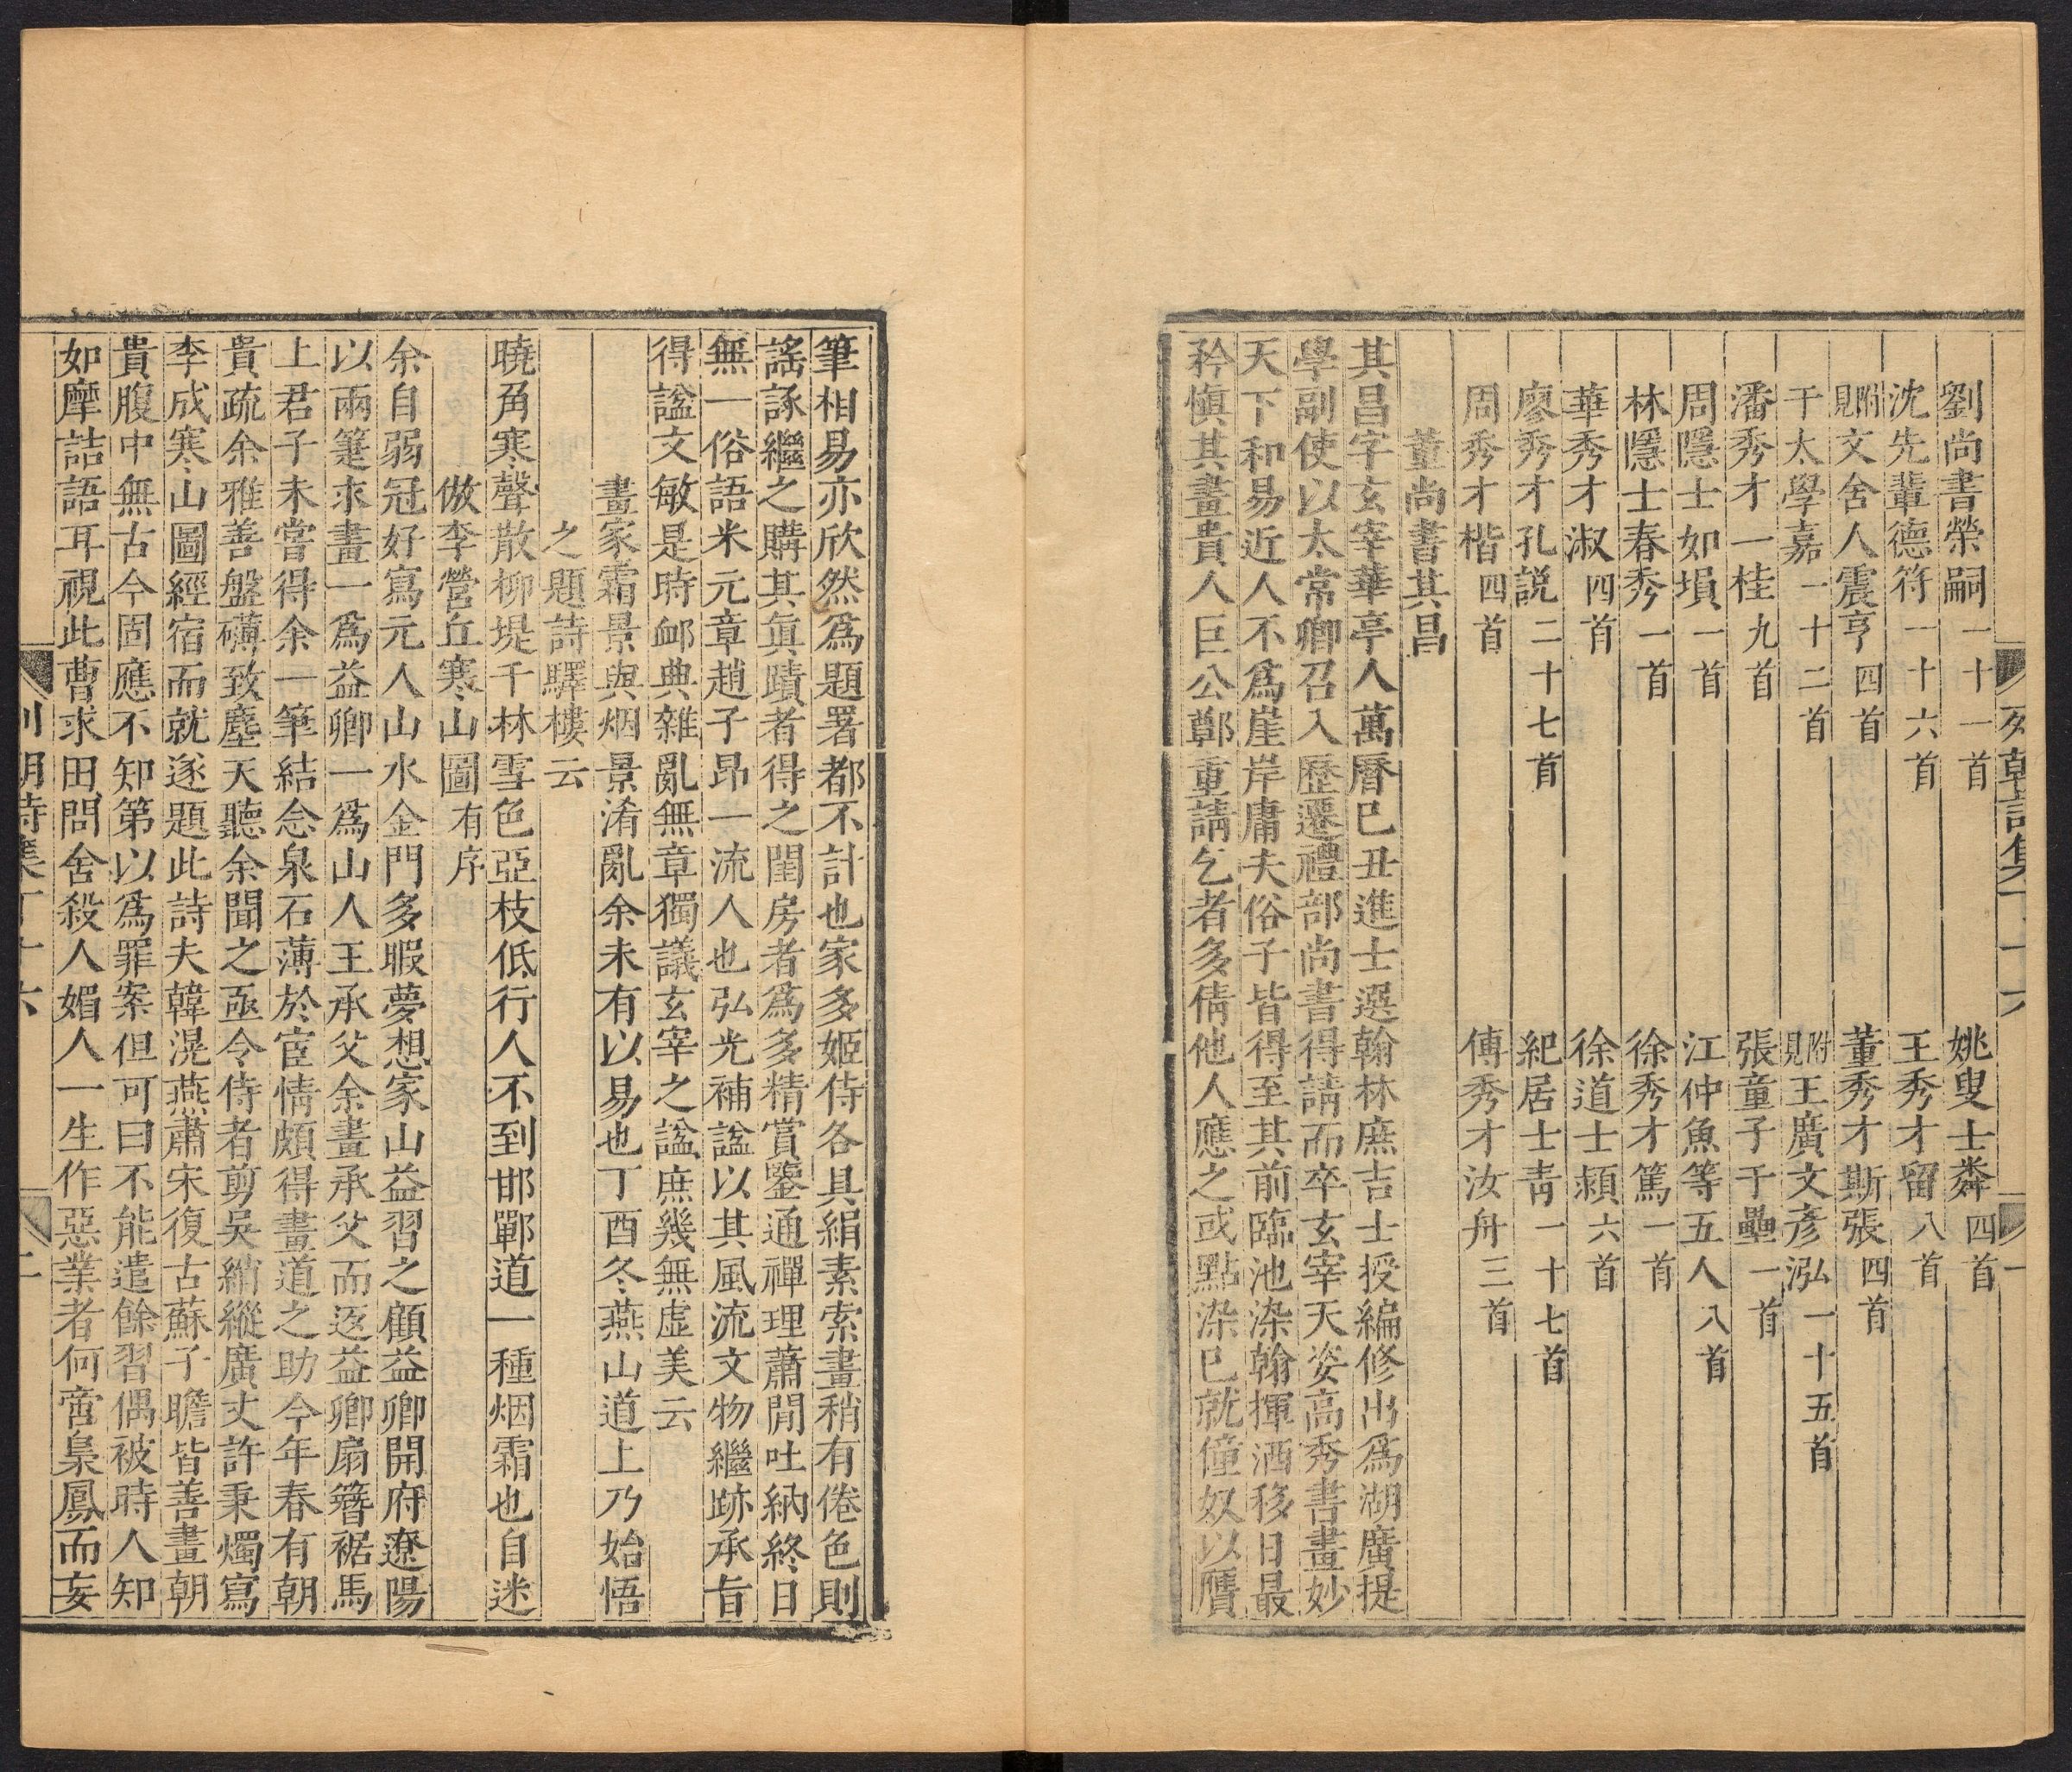 列朝詩集丁十六 一
劉尚書榮嗣一十一首 姚叟士粦四首
沈先輩德符一十六首 王秀才留八首
附見文舍人震亨四首 董秀才斯張四首
干太學嘉一十二首 附見王廣文彥泓一十五首
潘秀才一桂九首 張童子于壘一首
周隱士如塤一首 江仲魚等五人八首
林隱士春秀一首 徐秀才篤一首
華秀才淑四首 徐道士熲六首
廖秀才孔說二十七首 紀居士青一十七首
周秀才楷四首 傅秀才汝舟三首
董尚書其昌
其昌字玄宰華亭人萬曆己丑進士選翰林庶吉士授編修出爲湖廣提
學副使以太常卿召入歷遷禮部尚書得請而卒玄宰天姿高秀書畫妙
天下和易近人不爲崖岸庸夫俗子皆得至其前臨池染翰揮洒移日最
矜慎其畫貴人巨公鄭重請乞者多倩他人應之或點染已就僮奴以贋
筆相易亦欣然爲題署都不計也家多姬侍各具絹素索畫稍有倦色則
謠諑繼之購其眞蹟者得之閨房者爲多精賞鑒通禪理蕭閒吐納終日
無一俗語米元章趙子昂一流人也弘光補諡以其風流文物繼跡承旨
得諡文敏是時卹典雜亂無章獨議玄宰之諡庶幾無虛美云
畫家霜景與烟景淆亂余未有以易也丁酉冬燕山道上乃始悟
之題詩驛樓云
曉角寒聲散柳堤千林雪色亞枝低行人不到邯鄲道一種烟霜也自迷
倣李營丘寒山圖有序
余自弱冠好寫元人山水金門多暇夢想家山益習之顧益卿開府遼陽
以兩箑求畫一爲益卿一爲山人王承父余畫承父而返益卿扇簪裾馬
上君子未嘗得余一筆結念泉石薄於宦情頗得畫道之助今年春有朝
貴疏余雅善盤礴致塵天聽余聞之亟令侍者剪吳綃縱廣丈許秉燭寫
李成寒山圖經宿而就遂題此詩夫韓滉燕肅宋復古蘇子瞻皆善畫朝
貴腹中無古今固應不知第以爲罪案但可曰不能遣餘習偶被時人知
如摩詰語耳視此曹求田問舍殺人媚人一生作惡業者何啻梟鳳而妄
列朝詩集丁十六 二